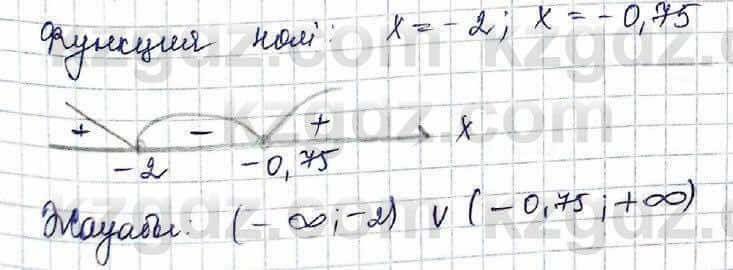 Функция нолі: x = -2; x = -0,75
+ - + x
-2 -0,75
Жауабы: (-∞; -2) ∨ (-0,75; +∞)
kzgdz.com